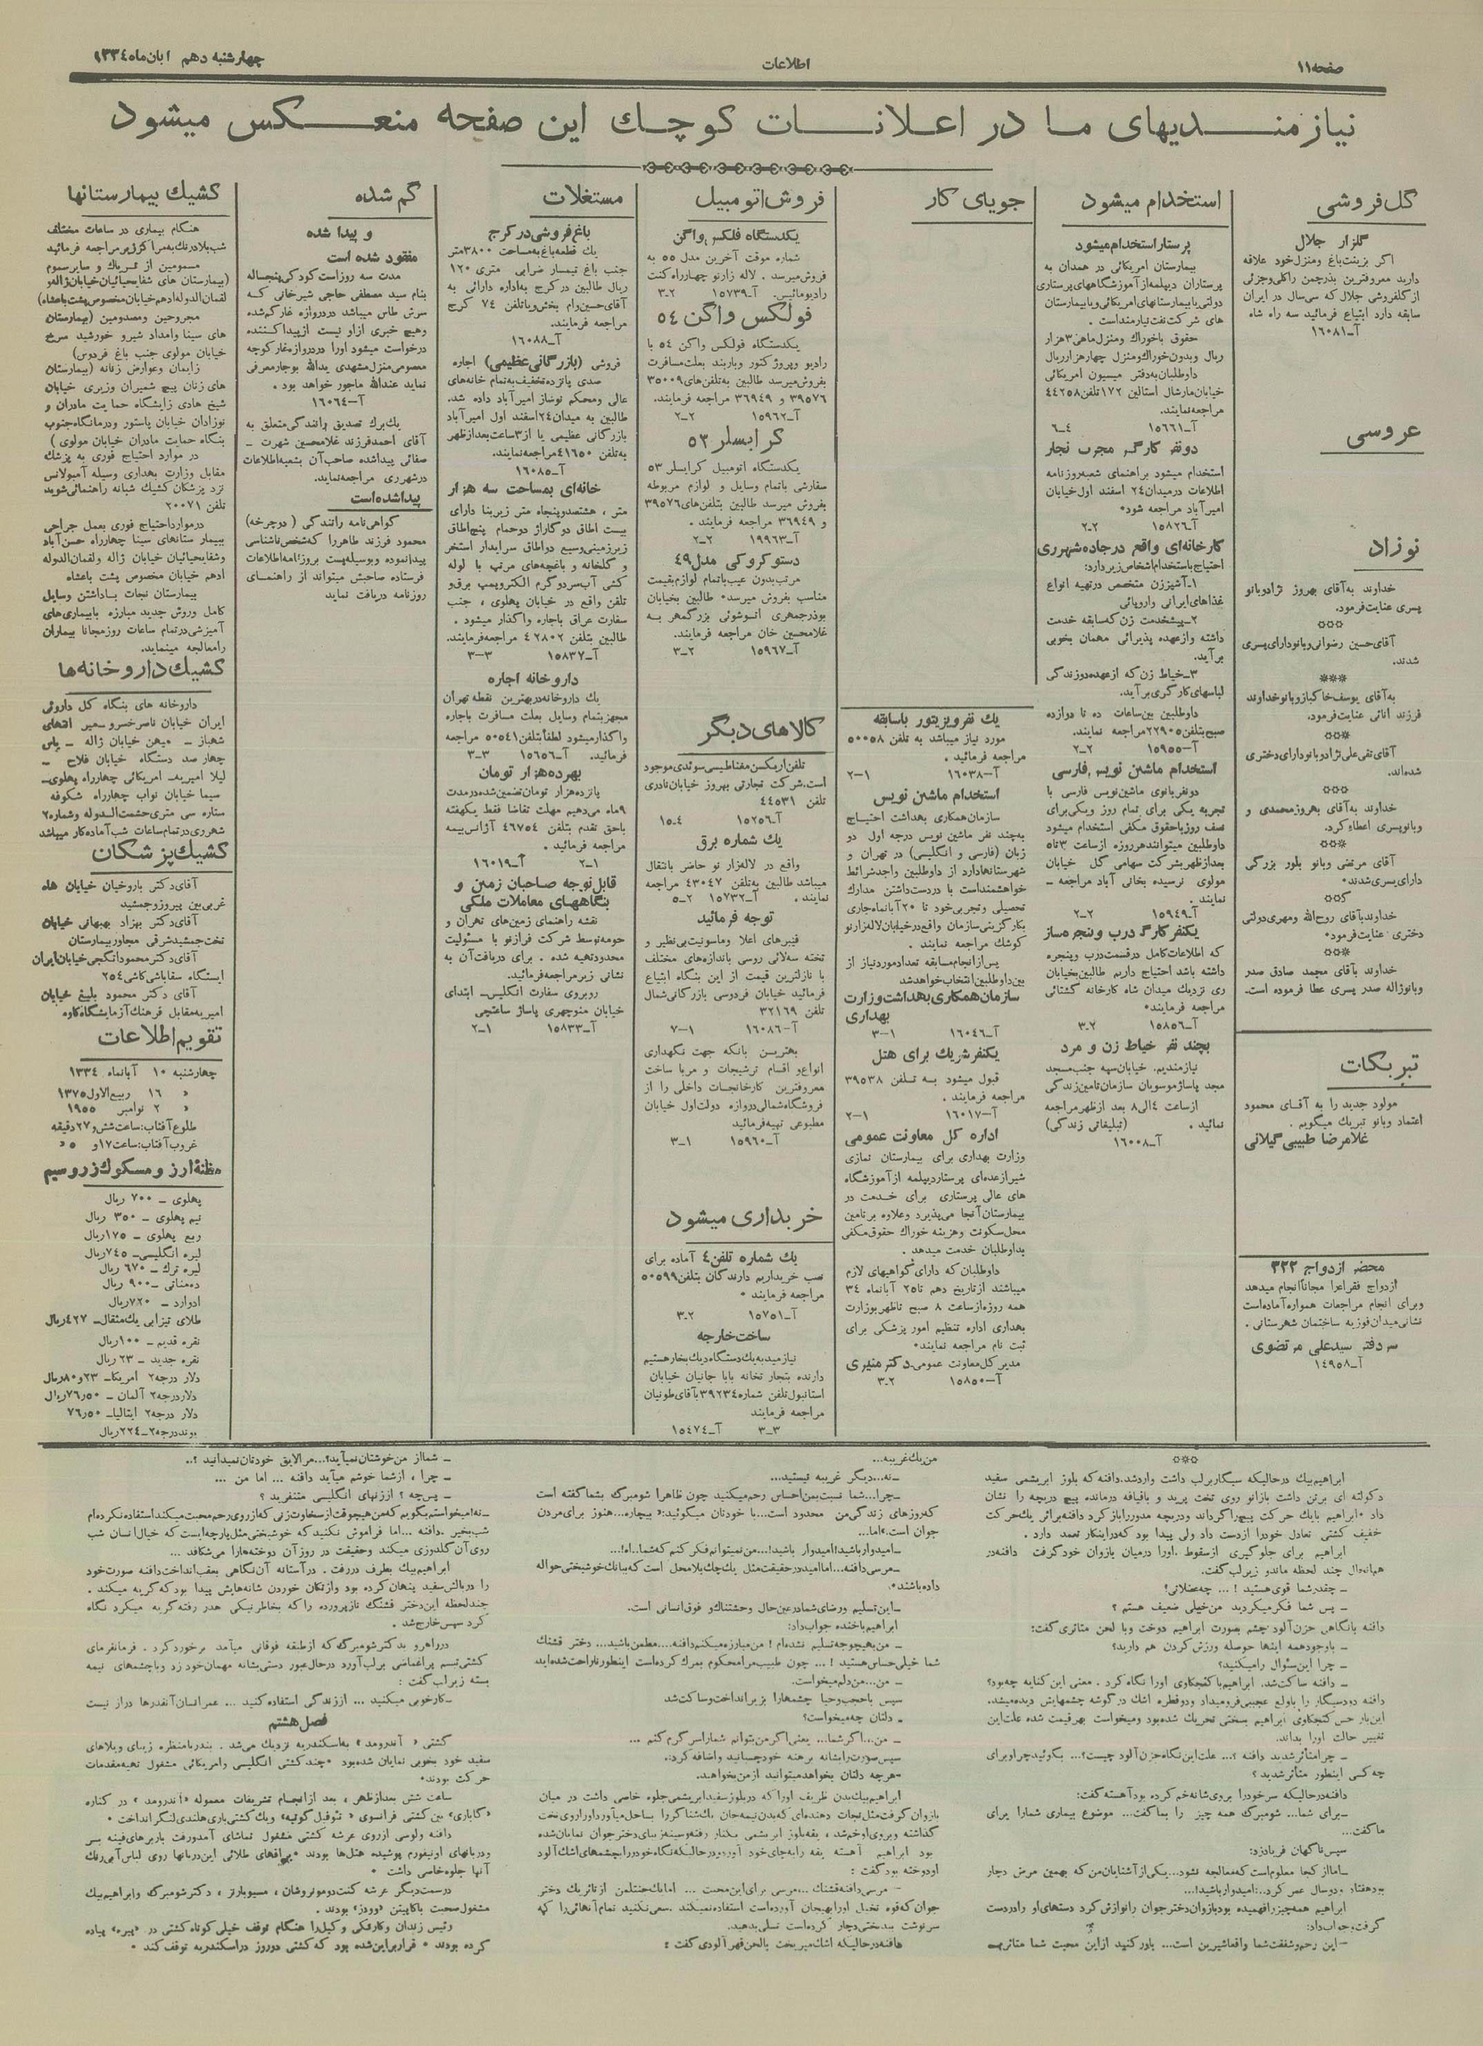 صفحه۱۱
اطلاعات
چهارشنبه دهم آبان‌ماه ۱۳۳۴
نیازمندیهای ما در اعلانات کوچک این صفحه منعکس میشود
گل‌فروشی
گلزار جلال
اگر بزینت‌باغ ومنزل‌خود علاقه
دارید معروفترین بذرچمن راکلی‌وجزئی
ازگلفروشی جلال که سی‌سال در ایران
سابقه دارد ابتیاع فرمائید سه راه شاه
آ-۱۶۰۸۱
عروسی
نوزاد
خداوند به‌آقای بهروز نژادوبانو
پسری عنایت‌فرمود.
آقای‌حسین رضوانی‌وبانودارای‌پسری
شدند.
به‌آقای یوسف‌خاکبازوبانوخداوند
فرزند اناثی عنایت‌فرمود.
آقای‌تقی‌علی‌نژادوبانودارای‌دختری
شده‌اند.
خداوند به‌آقای بهروزمحمدی و
وبانوپسری اعطاءکرد.
آقای مرتضی وبانو بلور بزرگی
دارای‌پسری‌شدند.
خداوندبآقای روح‌الله ومهری‌دولتی
دختری عنایت‌فرمود.
خداوند بآقای محمد صادق صدر
وبانوژاله صدر پسری عطا فرموده است.
تبریکات
مولود جدید را به آقای محمود
اعتماد وبانو تبریک میگویم.
غلامرضا طبیبی‌گیلانی
محضر ازدواج ۳۲۲
ازدواج فقراءرا مجانا‌انجام میدهد
وبرای انجام مراجعات همواره‌آماده‌است
نشانی‌میدان‌فوزیه ساختمان شهرستانی.
سردفتر سیدعلی مرتضوی
آ-۱۴۹۵۸
استخدام میشود
پرستاراستخدام‌میشود
بیمارستان امریکائی در همدان به
پرستاران دیپلمه‌ازآموزشگاههای‌پرستاری
دولتی‌یابیمارستانهای‌امریکائی‌ویابیمارستان
های شرکت‌نفت‌نیازمنداست.
حقوق باخوراک ومنزل‌ماهی۳هزار
ریال وبدون‌خوراک‌ومنزل چهارهزارریال
داوطلبان‌به‌دفتر میسیون امریکائی
خیابان‌مارشال استالین ۱۷۲تلفن۴۴۲۵۸
مراجعه‌نمایند.
آ-۱۵۶۶۱ ۴-۶
دونفر کارگر مجرب نجار
استخدام میشود براهنمای شعبه‌روزنامه
اطلاعات درمیدان۲۴ اسفند اول‌خیابان
امیرآباد مراجعه شود.
آ-۱۵۸۲۶ ۲-۲
کارخانه‌ای واقع درجاده‌شهرری
احتیاج‌باستخدام‌اشخاص‌زیردارد:
۱-آشپززن متخصص درتهیه انواع
غذاهای‌ایرانی واروپائی
۲-پیشخدمت زن که‌سابقه خدمت
داشته وازعهده پذیرائی مهمان بخوبی
برآید.
۳-خیاط زن که ازعهده‌دوزندگی
لباسهای‌کارگری برآید.
داوطلبان بین‌ساعات ده تا دوازده
صبح‌بتلفن۲۲۹۰۵مراجعه نمایند.
آ-۱۵۹۵۵ ۲-۲
استخدام ماشین نویس فارسی
دونفربانوی ماشین‌نویس فارسی با
تجربه یکی برای تمام روز ویکی‌برای
نصف روزباحقوق مکفی استخدام میشود
داوطلبین میتوانندهرروزه ازساعت ۳تا۵
بعدازظهربشرکت سهامی گل خیابان
مولوی نرسیده بخانی آباد مراجعه
نمایند.
آ-۱۵۹۴۹ ۲-۲
یکنفرکارگر درب وپنجره‌ساز
که اطلاعات‌کامل درقسمت‌درب وپنجره
داشته باشد احتیاج داریم طالبین‌بخیابان
ری نزدیک میدان شاه کارخانه گشتائی
مراجعه فرمایند.
آ-۱۵۸۵۶ ۲-۳
بچند نفر خیاط زن و مرد
نیازمندیم. خیابان‌سپه جنب‌مسجد
مجد پاساژموسویان سازمان‌تامین‌زندگی
ازساعت ۴الی۸ بعد ازظهرمراجعه
نمائید. (تبلیغاتی زندگی)
آ-۱۶۰۰۸
جویای کار
یک نفرویزیتور باسابقه
مورد نیاز میباشد به تلفن ۵۰۰۵۸
مراجعه فرمائید.
آ-۱۶۰۳۸ ۱-۲
استخدام ماشین نویس
سازمان‌همکاری بهداشت احتیاج
به‌چند نفر ماشین نویس درجه اول دو
زبان (فارسی و انگلیسی) در تهران و
شهرستانهادارد از داوطلبین واجدشرائط
خواهشمنداست با دردست‌داشتن مدارک
تحصیلی وتجربی‌خود تا ۲۰آبانماه‌جاری
بکارگزینی‌سازمان واقع‌درخیابان‌لاله‌زارنو
کوشک مراجعه نمایند.
پس‌ازانجام‌مسابقه تعدادموردنیاز از
بین‌داوطلبین‌انتخاب‌خواهدشد
سازمان‌همکاری‌بهداشت‌وزارت
بهداری
آ-۱۶۰۴۶ ۱-۳
یکنفرشریک برای هتل
قبول میشود به تلفن ۳۹۵۳۸
مراجعه فرمایند.
آ-۱۶۰۱۷ ۱-۲
اداره کل معاونت عمومی
وزارت بهداری برای بیمارستان نمازی
شیرازعده‌ای پرستاردیپلمه ازآموزشگاه
های عالی پرستاری برای خدمت در
بیمارستان‌آنجا می‌پذیرد وعلاوه برتامین
محل‌سکونت وهزینه خوراک حقوق‌مکفی
بداوطلبان خدمت میدهد.
داوطلبان که دارای‌گواهیهای لازم
میباشند ازتاریخ دهم تا۲۵ آبانماه ۳۴
همه روزه‌ازساعت ۸ صبح تاظهربوزارت
بهداری اداره تنظیم امور پزشکی برای
ثبت نام مراجعه نمایند.
مدیرکل‌معاونت عمومی-دکترمنیری
آ-۱۵۸۵۰ ۲-۳
فروش‌اتومبیل
یکدستگاه فلکس‌واگن
شماره موقت آخرین مدل ۵۵ به
فروش‌میرسد. لاله زارنو چهارراه‌کنت
رادیومائیس. آ-۱۵۷۳۹ ۲-۳
فولکس واگن ۵۴
یکدستگاه فولکس واگن ۵۴ با
رادیو وپروژکتور وباربند بعلت‌مسافرت
بفروش‌میرسد طالبین به‌تلفن‌های۳۵۰۰۹
و ۳۶۹۴۹ ۳۹۵۷۶ مراجعه فرمایند.
آ-۱۵۹۶۲ ۲-۲
کرایسلر ۵۳
یکدستگاه اتومبیل کرایسلر ۵۳
سفارشی باتمام وسایل و لوازم مربوطه
بفروش میرسد طالبین بتلفن‌های ۳۹۵۷۶
و ۳۶۹۴۹ مراجعه فرمایند.
آ-۱۹۹۶۳ ۲-۲
دستوکروکی مدل۴۹
مرتب‌بدون عیب‌باتمام لوازم‌بقیمت
مناسب بفروش میرسد. طالبین بخیابان
بوذرجمهری اتوشوئی بزرگمهر به
غلامحسین خان مراجعه فرمایند.
آ-۱۵۹۶۷ ۲-۳
کالاهای دیگر
تلفن‌اریکسن‌مغناطیسی‌سوئدی‌موجود
است.شرکت تجارتی بهروز خیابان‌نادری
تلفن ۴۴۵۳۱
آ-۱۵۲۵۶ ۴-۱۵
یک شماره برق
واقع در لاله‌زار نو حاضر بانتقال
میباشد طالبین به‌تلفن ۴۳۰۴۷ مراجعه
نمایند. آ-۱۵۷۳۲ ۲-۵
توجه فرمائید
فیبرهای اعلا وماسونیت‌بی‌نظیر و
تخته سه‌لائی روسی باندازه‌های مختلف
با نازلترین قیمت از این بنگاه ابتیاع
فرمائید خیابان فردوسی بازرگانی‌شمال
تلفن ۳۲۱۶۹
آ-۱۶۰۸۶ ۱-۷
بهترین بانکه جهت نگهداری
انواع‌و اقسام ترشیجات و مرباساخت
معروفترین کارخانجات داخلی را از
فروشگاه‌شمالی‌دروازه دولت‌اول خیابان
مطبوعی تهیه‌فرمائید
آ-۱۵۹۶۰ ۱-۳
خریداری میشود
یک شماره تلفن۴ آماده برای
نصب خریداریم دارندگان بتلفن۵۰۵۹۹
مراجعه فرمایند.
آ-۱۵۷۵۱ ۲-۳
ساخت‌خارجه
نیازمندبه‌یک‌دستگاه‌دیک‌بخارهستیم
دارنده بتجار تخانه بابا جانیان خیابان
استانبول‌تلفن شماره۳۹۲۳۴باآقای‌طونیان
مراجعه فرمایند
۳-۳ آ-۱۵۴۷۴
مستغلات
باغ‌فروشی‌درکرج
یک قطعه‌باغ‌به‌مساحت ۳۸۰۰متر
جنب باغ تیمسار ضرابی متری ۱۲۰
ریال طالبین درکرج به‌اداره دارائی به
آقای‌حسن‌وام بخش‌ویاتلفن ۷۴ کرج
مراجعه فرمایند.
آ-۱۶۰۸۸
فروشی (بازرگانی‌عظیمی) اجاره
صدی پانزده‌تخفیف‌به‌تمام خانه‌های
عالی ومحکم نوساز امیرآباد داده شد.
طالبین به میدان۲۴اسفند اول امیرآباد
بازرگانی عظیمی یا از۳ساعت‌بعدازظهر
به‌تلفن ۴۱۶۵۰مراجعه‌نمایند.
آ-۱۶۰۸۵
خانه‌ای بمساحت سه هزار
متر، هشتصدوپنجاه متر زیربنا دارای
بیست اطاق دوگاراژ دوحمام پنج‌اطاق
زیرزمینی‌وسیع دواطاق سرایدار استخر
و گلخانه و باغچه‌های مرتب با لوله
کشی آب‌سردوگرم الکتروپمپ برق‌و
تلفن واقع در خیابان پهلوی، جنب
سفارت عراق باجاره واگذار میشود.
طالبین بتلفن ۴۲۸۰۲ مراجعه‌فرمایند.
آ-۱۵۸۳۷ ۳-۳
داروخانه اجاره
یک داروخانه‌دربهترین نقطه تهران
مجهزبتمام وسایل بعلت مسافرت باجاره
واگذارمیشود لطفاًبتلفن ۵۰۵۴۱ مراجعه
فرمائید. آ-۱۵۶۵۶ ۳-۳
بهرده‌هزار تومان
پانزده‌هزار تومان‌تضمین‌شده‌درمدت
۹ماه می‌دهیم مهلت تقاضا فقط یکهفته
باحق تقدم بتلفن ۴۶۷۵۴ آژانس‌بیمه
مراجعه فرمائید.
۱-۲ آ-۱۶۰۱۹
قابل‌توجه صاحبان زمین و
بنگاههای معاملات ملکی
نقشه راهنمای زمین‌های تهران و
حومه‌توسط شرکت فرازنو با مسئولیت
محدودتهیه شده. برای دریافت‌آن به
نشانی زیرمراجعه‌فرمائید.
روبروی سفارت انگلیس- ابتدای
خیابان منوچهری پاساژ ساعتچی
آ-۱۵۸۳۳ ۱-۲
گم شده
و پیدا شده
مفقود شده است
مدت سه روزاست‌کودکی‌پنجساله
بنام سید مصطفی حاجی شیرخانی که
سرش طاس میباشد دردروازه غارگم‌شده
وهیچ خبری ازاو نیست ازپیداکننده
درخواست میشود اورا دردروازه‌غارکوچه
معصومی‌منزل‌مشهدی یدالله بوجارمعرفی
نماید عندالله ماجور خواهد بود.
آ-۱۶۰۶۴
یک‌برگ تصدیق رانندگی‌متعلق به
آقای احمدفرزند غلامحسین شهرت
صفائی پیداشده صاحب‌آن بشعبه‌اطلاعات
درشهرری مراجعه‌نماید.
پیداشده‌است
گواهی‌نامه رانندگی (دوچرخه)
محمود فرزند طاهررا که‌شخص‌ناشناسی
پیدانموده وبوسیله‌پست بروزنامه‌اطلاعات
فرستاده صاحبش میتواند از راهنمای
روزنامه دریافت نماید
کشیک بیمارستانها
هنگام بیماری در ساعات مختلف
شب‌بلادرنگ‌به‌مراکززیرمراجعه فرمائید
مسمومین از تریاک و سایرسموم
(بیمارستان های شفایحیائیان‌خیابان‌ژاله‌و
لقمان‌الدوله‌ادهم‌خیابان‌مخصوص‌پشت‌باغشاه)
مجروحین ومصدومین (بیمارستان
های سینا وامداد شیرو خورشید سرخ
خیابان مولوی جنب باغ فردوس)
زایمان وعوارض زنانه (بیمارستان
های زنان پیچ شمیران وزیری خیابان
شیخ هادی زایشگاه حمایت مادران و
نوزادان خیابان پاستور ودرمانگاه‌جنوب
بنگاه حمایت مادران خیابان مولوی)
در موارد احتیاج فوری به پزشک
مقابل وزارت بهداری وسیله آمبولانس
نزد پزشکان کشیک شبانه راهنمائی‌شوید
تلفن ۲۰۰۷۱
درموارداحتیاج فوری بعمل جراحی
بیمارستانهای سینا چهارراه حسن‌آباد
وشفایحیائیان خیابان ژاله ولقمان‌الدوله
ادهم خیابان مخصوص پشت باغشاه
بیمارستان نجات باداشتن وسایل
کامل وروش جدید مبارزه بابیماری‌های
آمیزشی‌درتمام ساعات روزمجانا بیماران
رامعالجه مینماید.
کشیک‌داروخانه‌ها
داروخانه های بنگاه کل داروئی
ایران خیابان ناصرخسرو-میر انتهای
شهباز - میهن خیابان ژاله - یاس
چهارصد دستگاه خیابان فلاح -
لیلا امیریه- امریکائی چهارراه پهلوی-
سیما خیابان نواب چهارراه شکوفه
ستاره سی متری‌حشمت‌الدوله وشماره۲
شهرری‌درتمام‌ساعات شب‌آماده‌کار میباشد
کشیک‌پزشکان
آقای‌دکتر باروخیان خیابان شاه
غربی‌بین پیروزوجمشید
آقای‌دکتر بهزاد بهبهانی خیابان
تخت‌جمشیدشرقی مجاوربیمارستان
آقای‌دکترمحموداتگجی‌خیابان‌ایران
ایستگاه سقاباشی‌کاشی۲۵۴
آقای دکتر محمود بلیغ خیابان
امیریه‌مقابل فرهنگ‌آزمایشگاه‌کاوه
تقویم‌اطلاعات
چهارشنبه ۱۰ آبانماه ۱۳۳۴
» ۱۶ ربیع‌الاول۱۳۷۵
» ۲ نوامبر ۱۹۵۵
طلوع‌آفتاب:ساعت‌شش‌و۲۷دقیقه
غروب‌آفتاب:ساعت۱۷و ۵»
مظنه‌ارز ومسکوک‌زروسیم
پهلوی - ۷۰۰ ریال
نیم پهلوی - ۳۵۰ ریال
ربع پهلوی - ۱۷۵ریال
لیره انگلیسی- ۷۴۵ریال
لیره ترک - ۶۷۰ ریال
ده‌مناتی - ۹۰۰ ریال
ادوارد - ۷۲۰ریال
طلای تیزابی یک‌مثقال- ۴۲۷ریال
نقره قدیم - ۱۰۰ریال
نقره جدید - ۲۳ ریال
دلار درجه۲ آمریکا- ۲۳و۸۰ریال
دلاردرجه۲ آلمان - ۷۶ر۵۰ریال
دلار درجه۲ ایتالیا- ۷۶ر۵۰
پوند‌درجه۲-۲۲۴ریال
ابراهیم‌بیک درحالیکه سیگاربرلب داشت واردشد.دافنه‌که بلوز ابریشمی سفید
دکولته ای برتن داشت بازانو روی تخت پرید و باقیافه درمانده پیچ دریچه را نشان
داد. ابراهیم بایک حرکت پیچ‌راگرداند ودریچه مدوررابازکرد دافنه‌براثر یک‌حرکت
خفیف کشتی تعادل خودرا ازدست داد ولی پیدا بود که‌دراینکار تعمد دارد.
ابراهیم برای جلوگیری ازسقوط، اورا درمیان بازوان خودگرفت دافنه‌در
همانحال چند لحظه ماندو زیرلب‌گفت.
- چقدرشما قوی‌هستید!... چه‌عضلاتی؟
- پس شما فکرمیکردید من‌خیلی ضعیف هستم؟
دافنه بانگاهی حزن‌آلود چشم بصورت ابراهیم دوخت وبا لحن متاثری‌گفت:
- باوجودهمه اینها حوصله ورزش‌کردن هم دارید؟
- چرا این‌سئوال رامیکنید؟
- دافنه ساکت‌شد. ابراهیم‌باکنجکاوی اورا نگاه‌کرد. معنی این‌کنایه چه‌بود؟
دافنه دودسیگار را باولع عجیبی‌فرومیداد ودوقطره اشک درگوشه چشمهایش دیده‌میشد.
این‌بار حس‌کنجکاوی ابراهیم بسختی تحریک شده‌بود ومیخواست بهرقیمت شده علت‌این
تغییر حالت اورا بداند.
- چرامتأثرشدید دافنه؟... علت‌این نگاه‌حزن‌آلود چیست؟... بگوئیدچراوبرای
چه‌کسی اینطور متأثرشدید؟
دافنه‌درحالیکه سرخودرا بروی‌شانه‌خم‌کرده بودآهسته‌گفت:
-برای شما... شومبرگ همه چیز را بماگفت... موضوع بیماری شمارا برای
ماگفت...
سپس‌ناگهان فریادزد:
-امااز کجا معلوم‌است‌که‌معالجه نشود... یکی‌ازآشنایان‌من‌که بهمین مرض دچار
بودهفتاد ودوسال عمرکرد...امیدوارباشید!...
ابراهیم همه‌چیزرافهمیده بودبازوان‌دخترجوان رانوازش‌کرد دستهای‌او رادردست
گرفت‌وجواب‌داد:
-این رحم‌وشفقت‌شما واقعاشیرین است... باورکنید ازاین محبت شما متاثرم
من‌یک‌غریبه...
-نه...دیگر غریبه نیستید...
-چرا...شما نسبت‌بمن‌احساس رحم‌میکنید چون ظاهرا شومبرگ بشماگفته است
که‌روزهای زندگی‌من محدود است...با خودتان میگوئید:«بیچاره...هنوز برای‌مردن
جوان است.»اما...
-امیدوارباشید!امیدوار باشید!...من‌نمیتوانم‌فکرکنم‌که‌شما..اه!...
-مرسی‌دافنه...اماامیددرحقیقت‌مثل یک‌چک‌بلامحل است‌که‌ببانک‌خوشبختی‌حواله
داده‌باشند.
-این‌تسلیم ورضای‌شمادرعین‌حال وحشتناک‌و فوق‌انسانی است.
ابراهیم‌باخنده جواب‌داد:
- من‌بهیچوجه‌تسلیم نشده‌ام! من‌مبارزه‌میکنم‌دافنه...مطمئن‌باشید... دختر قشنگ
شما خیلی‌حساس‌هستید!... چون طبیب‌مرامحکوم بمرگ‌کرده‌است اینطورناراحت‌شده‌اید
- من...من‌دلم‌میخواست...
سپس باحجب‌وحیا چشمهارا بزیرانداخت‌وساکت‌شد
- دلتان چه‌میخواست؟
- من...اگرشما... یعنی‌اگرمن‌بتوانم شماراسرگرم‌کنم...
سپس‌صورت‌رابشانه برهنه خودچسبانید واضافه‌کرد:
-هرچه دلتان بخواهدمیتوانید ازمن‌بخواهید.
ابراهیم‌بیک‌بدن ظریف اوراکه دربلوزسفیدابریشمی‌جلوه خاصی داشت در میان
بازوان‌گرفت‌مثل‌نجات دهنده‌ای‌که‌بدن‌نیمه‌جان یک‌شناگررا بساحل‌میآورداوراروی‌تخت
گذاشته وبروی‌اوخم‌شد، یقه‌بلوز ابریشمی بکنار رفته‌وسینه‌زیبای‌دخترجوان نمایان‌شده
بود ابراهیم آهسته یقه رابجای‌خود آورد‌ودرحالیکه‌نگاه‌خودرابچشمهای‌اشک‌آلود
اودوخته بودگفت:
- مرسی‌دافنه‌قشنگ...مرسی برای‌این‌محبت... امایک‌جنتلمن ازتاثریک دختر
جوان‌که‌قوه تخیل اورابهیجان آورده‌است استفاده‌نمیکند.سعی‌نکنید تمام‌آنهائی‌را که
سرنوشت ببدبختی‌دچار کرده‌است تسلی‌بدهید.
دافنه‌درحالیکه اشک‌میریخت بالحن‌قهرآلودی‌گفت:
- شمااز من‌خوشتان نمیآید؟...مرالایق خودتان‌نمیدانید؟..
- چرا، ازشما خوشم میآید دافنه... اما من...
- پس‌چه؟ اززنهای انگلیسی متنفرید؟
-نه‌!میخواستم‌بگویم که‌من‌هیچوقت‌ازسخاوت‌زنی‌که‌ازروی‌رحم‌محبت‌میکنداستفاده‌نکرده‌ام
شب‌بخیر، دافنه...اما فراموش نکنید که خوشبختی‌مثل‌پارچه‌ایست‌که خیال‌انسان شب
روی‌آن‌گلدوزی میکند وحقیقت در روزآن دوخته‌هارا می‌شکافد...
ابراهیم‌بیک بطرف دررفت. درآستانه آن‌نگاهی بعقب‌انداخت‌دافنه صورت‌خود
را دربالش‌سفید پنهان‌کرده بود وازتکان خوردن شانه‌هایش پیدا بودکه‌گریه میکند.
چندلحظه‌این‌دختر قشنگ نازپرورده راکه بخاطرنیکی هدر رفته‌گریه میکرد نگاه
کرد سپس‌خارج‌شد.
درراهرو بدکترشومبرگ‌که ازطبقه فوقانی میآمد برخوردکرد. فرمانفرمای
کشتی‌تبسم پراغماضی برلب‌آورد درحال‌عبور دستی‌بشانه مهمان‌خودزد وباچشمهای نیمه
بسته زیرلب‌گفت:
-کارخوبی میکنید... اززندگی استفاده‌کنید... عمرانسان‌آنقدرها دراز نیست
فصل هشتم
کشتی «آندرومد» به‌اسکندریه نزدیک می‌شد. بندربامنظره زیبای ویلاهای
سفید خود بخوبی نمایان شده‌بود. چندکشتی انگلیسی وامریکائی مشغول تهیه‌مقدمات
حرکت بودند.
ساعت شش بعدازظهر، بعد ازانجام تشریفات معموله «آندرومد» در کناره
«گاباری» بین‌کشتی فرانسوی «تئوفیل گوتیه» ویک‌کشتی‌باری‌هلندی‌لنگرانداخت.
دافنه ولوسی ازروی عرشه کشتی مشغول تماشای آمدورفت باربرهای‌فینه بسر
ودربانهای اونیفورم پوشیده هتل‌ها بودند. یراقهای طلائی این‌دربانها روی لباس‌آبی‌رنگ
آنها جلوه‌خاصی داشت.
درسمت‌دیگر عرشه کنت‌دومونروشان، مسیوبارتز، دکترشومبرگ وابراهیم‌بیک
مشغول صحبت باکاپیتن «وودز» بودند.
رئیس زندان وکارفکی و کیل‌را هنگام توقف خیلی‌کوتاه‌کشتی در «پیره» پیاده
کرده بودند. قراربراین‌شده بود که‌کشتی دوروز دراسکندریه توقف کند.